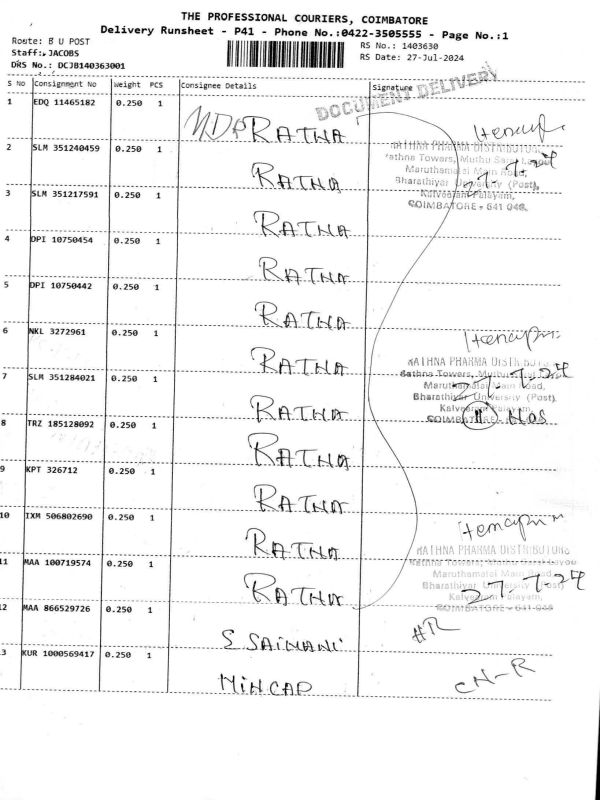 THE PROFESSIONAL COURIERS, COIMBATORE
Delivery Runsheet - P41 - Phone No.:0422-3505555 - Page No.:1
Route: B U POST
Staff: JACOBS
DRS No.: DCJB140363001
RS No.: 1403630
RS Date: 27-Jul-2024
S No Consignment No Weight PCS Consignee Details Signature
DOCUMENT DELIVERY
1 EDQ 11465182 0.250 1 RATNA
2 SLM 351240459 0.250 1 RATNA
3 SLM 351217591 0.250 1 RATNA
4 DPI 10750454 0.250 1 RATNA
5 DPI 10750442 0.250 1 RATNA
6 NKL 3272961 0.250 1 RATNA
7 SLM 351284021 0.250 1 RATNA
8 TRZ 185128092 0.250 1 RATNA
9 KPT 326712 0.250 1 RATNA
10 IXM 506802690 0.250 1 RATNA
11 MAA 100719574 0.250 1 RATNA
12 MAA 866529726 0.250 1 S SAIMANI #R
13 KUR 1000569417 0.250 1 MINCAP CN-R
RATHNA PHARMA DISTRIBUTORS
Rathna Towers, Muthu
Maruthamalai Main Road,
Bharathiyar University (Post),
Kalveeram Palayam,
COIMBATORE - 641 046.
27.7.24
RATHNA PHARMA DISTRIBUTORS
Rathna Towers,
Maruthamalai Main Road,
Bharathiyar University (Post),
Kalveeram Palayam,
COIMBATORE
27.7.24
11 Nos
RATHNA PHARMA DISTRIBUTORS
Rathna Towers,
Maruthamalai Main Road,
Bharathiyar University (Post)
Kalveeram Palayam,
COIMBATORE - 641 046
27.7.24